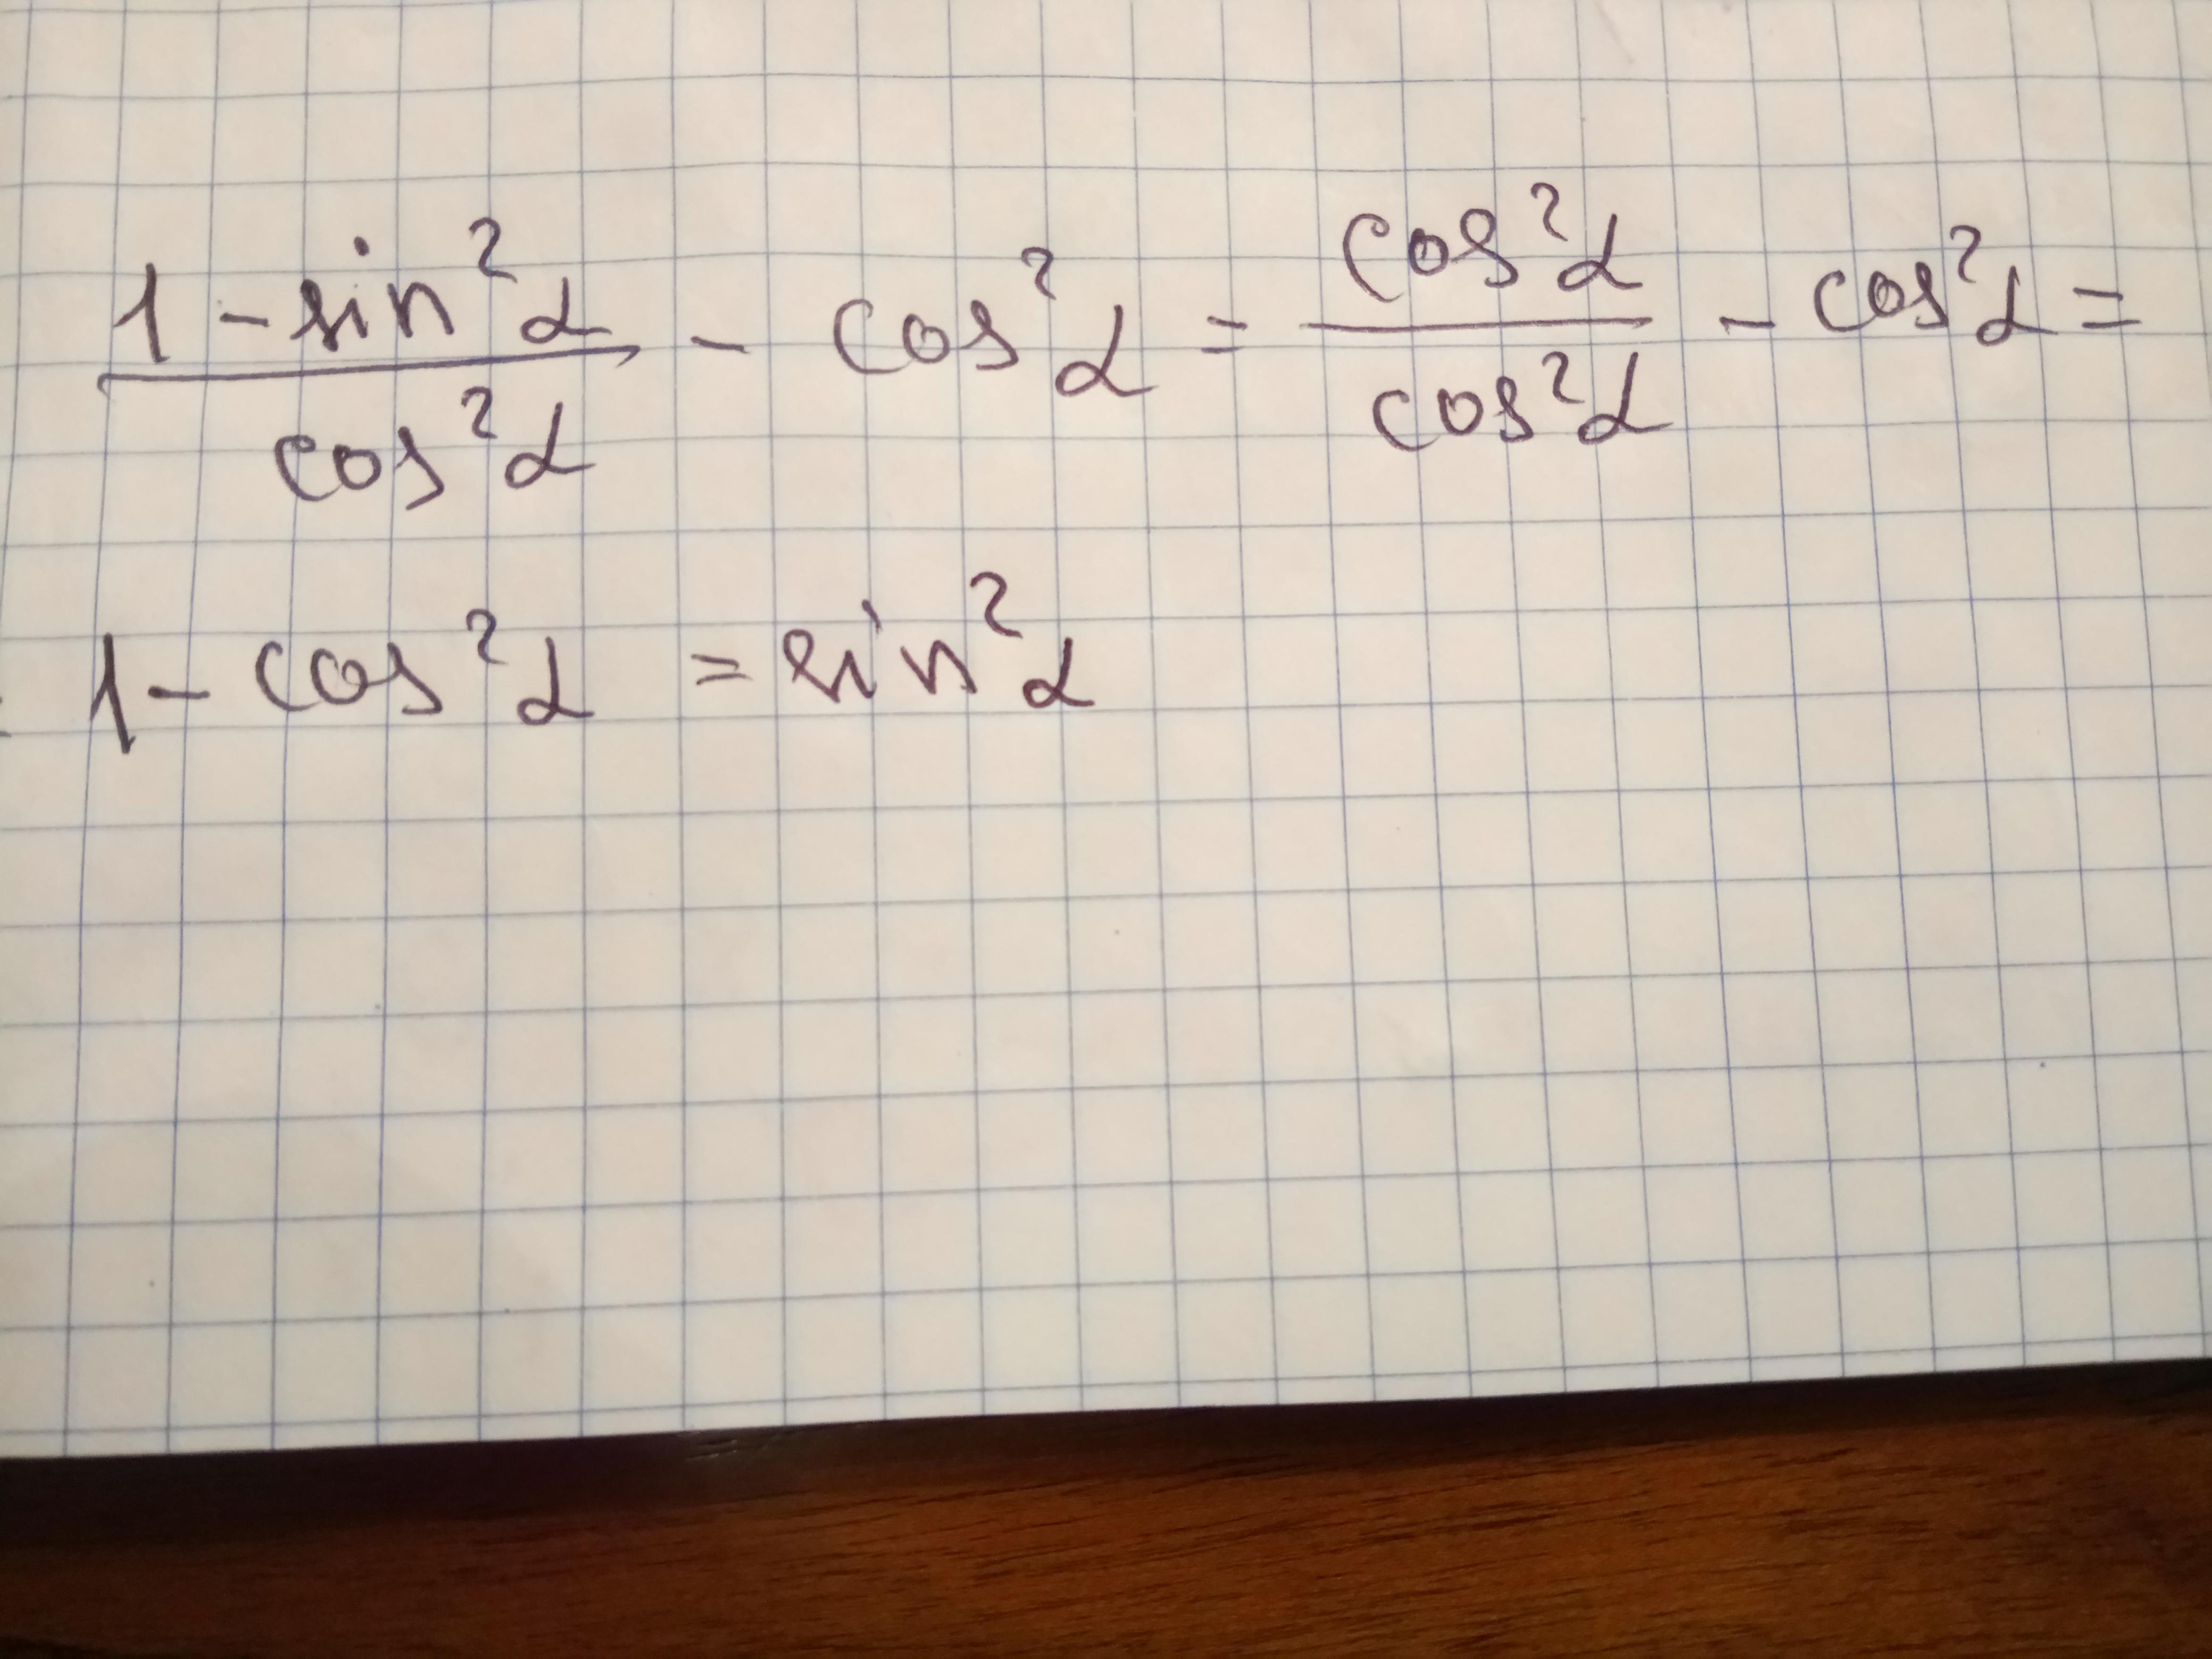 (1 - sin²α)/(cos²α) - cos²α = (cos²α)/(cos²α) - cos²α =
= 1 - cos²α = sin²α